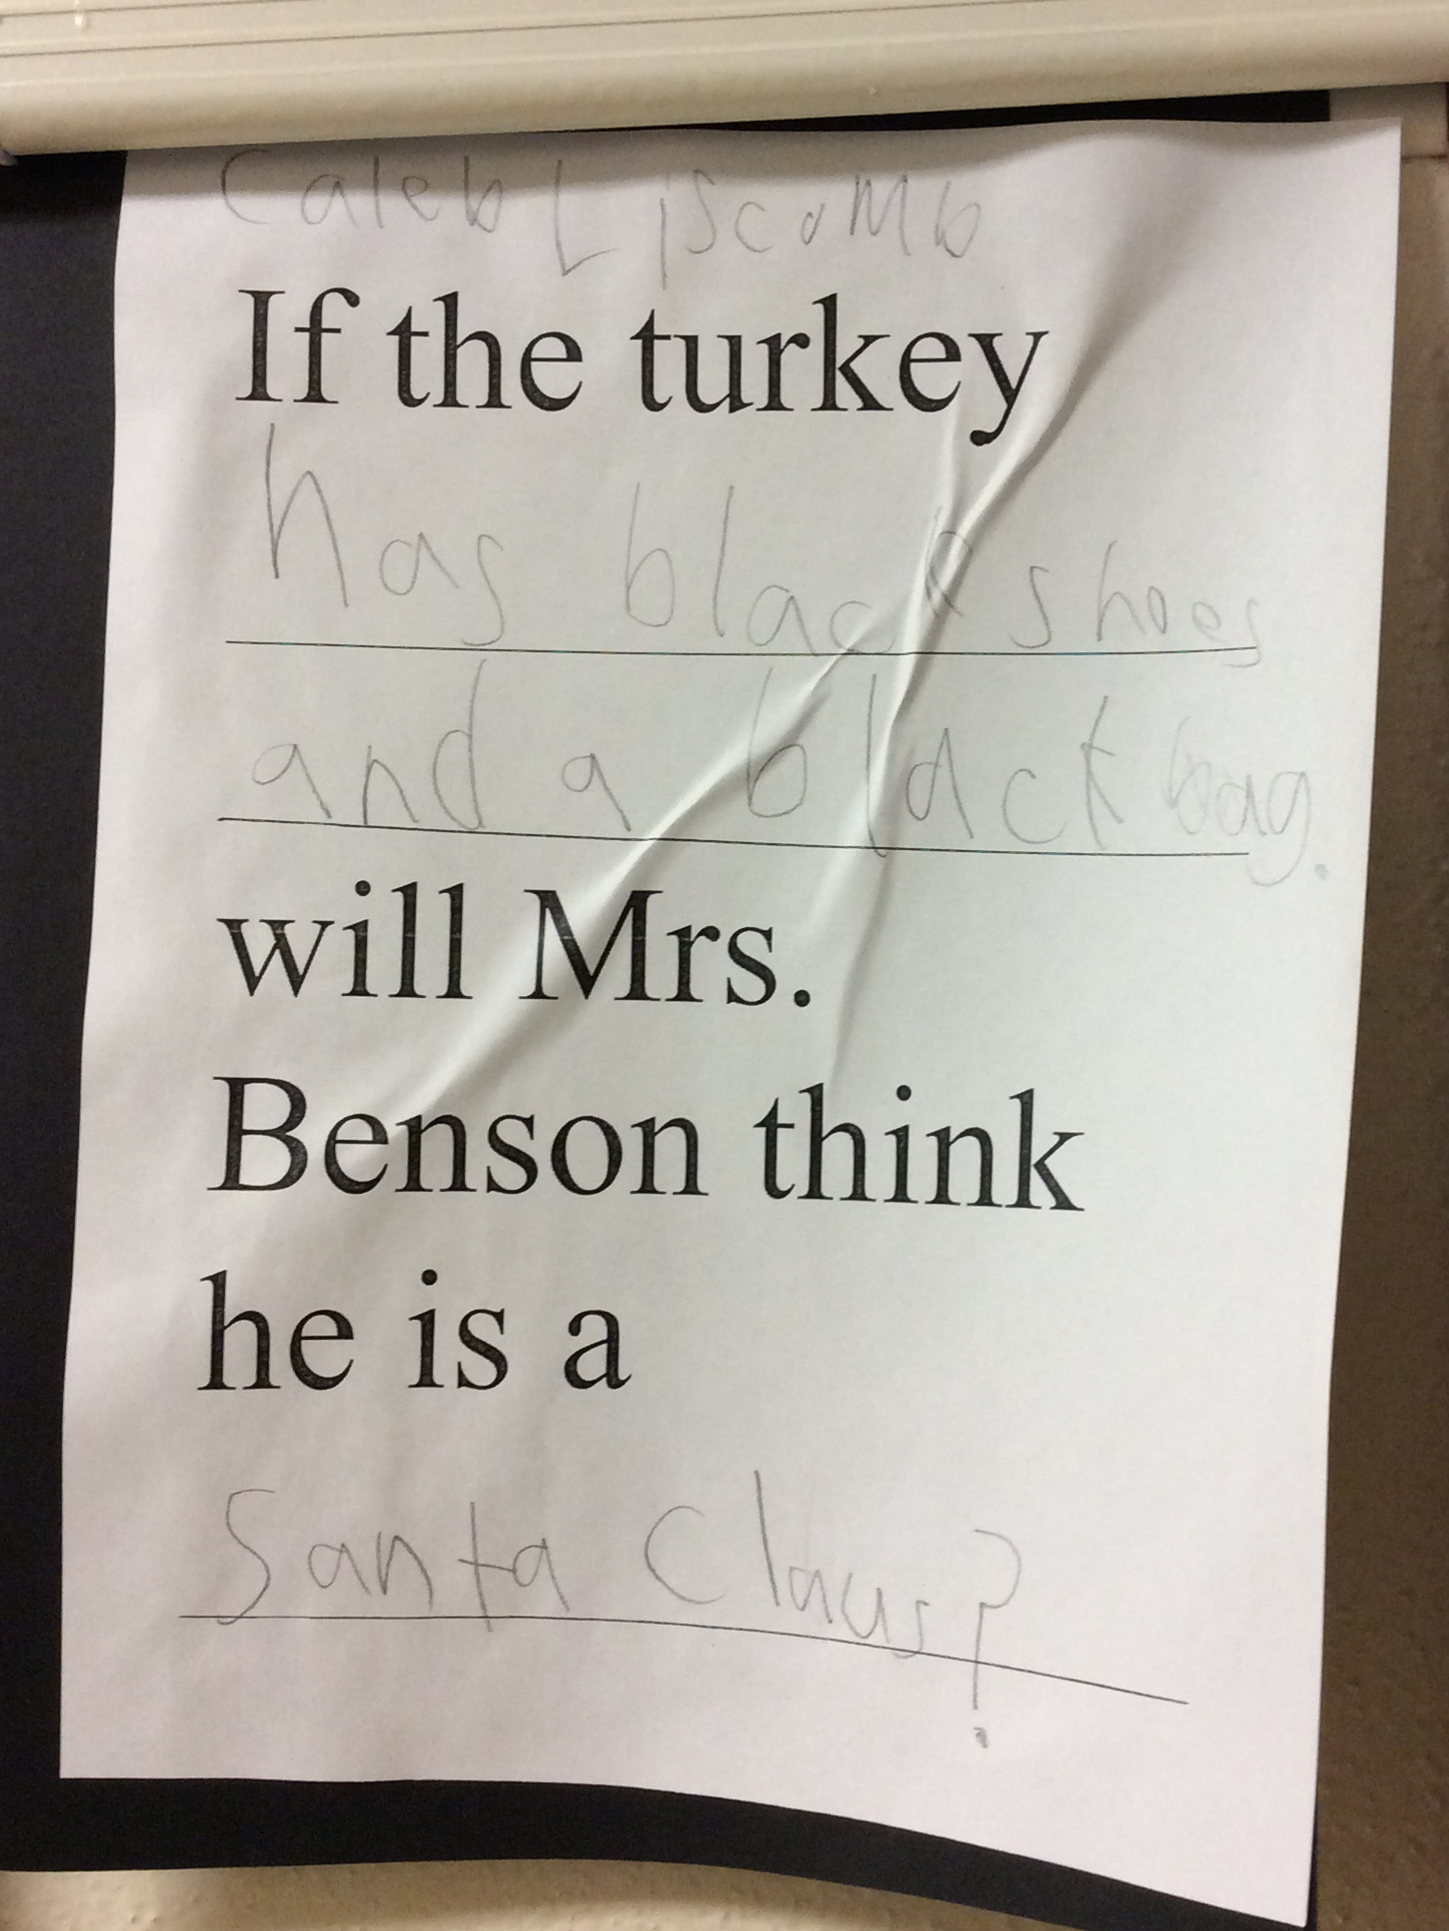 Caleb Liscomb
If the turkey
has black shoes
and a black bag.
will Mrs.
Benson think
he is a
Santa Claus?